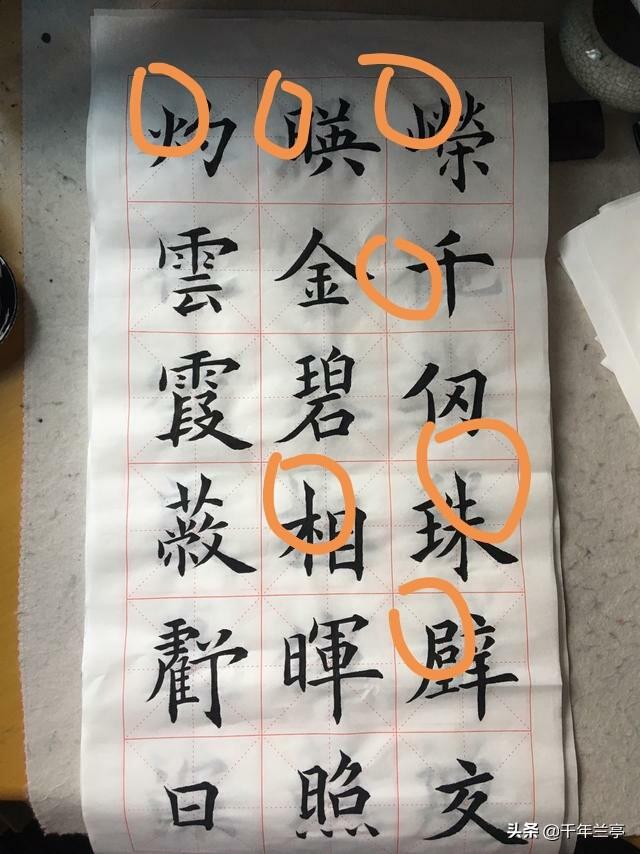 嶸千仞珠壁交
暎金碧相暉照
灼雲霞蔽虧日
头条 @千年兰亭